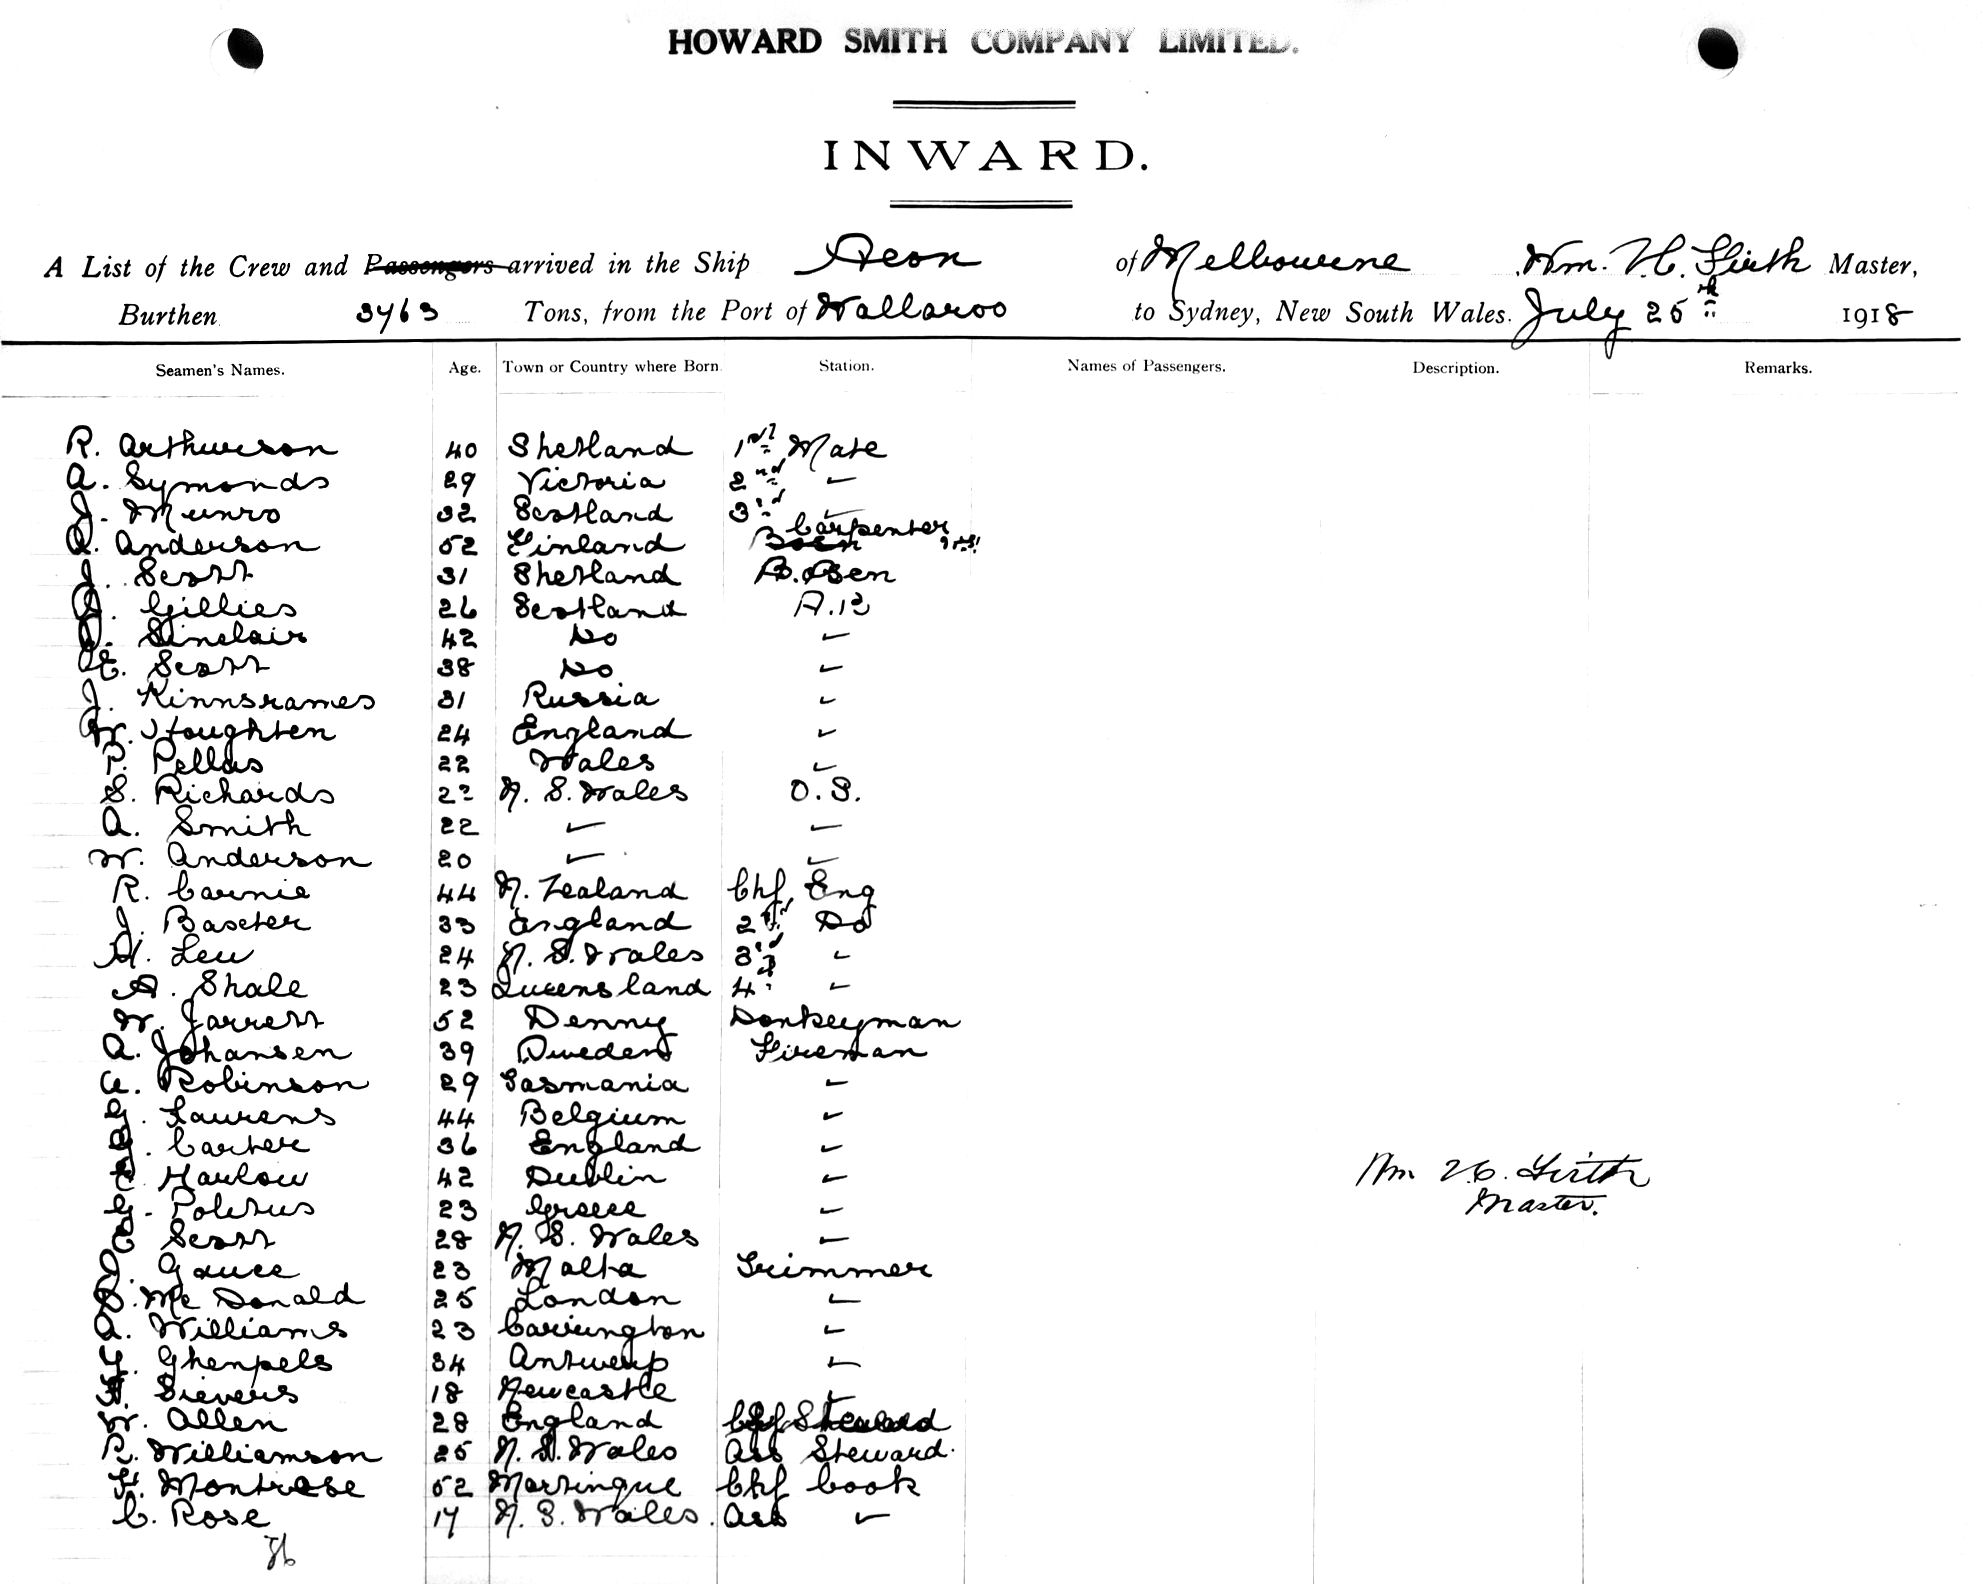 HOWARD SMITH COMPANY LIMITED.
INWARD.
A List of the Crew and Passengers arrived in the Ship Aeon of Melbourne Wm. V.C. Firth Master,
Burthen 3763 Tons, from the Port of Wallaroo to Sydney, New South Wales. July 25th 1918
Seamen's Names. Age. Town or Country where Born. Station. Names of Passengers. Description. Remarks.
R. Arthurson 40 Shetland 1st Mate
A. Symonds 29 Victoria 2nd "
J. Munro 32 Scotland 3rd "
Carpenter
A. Anderson 52 Finland Bosn
J. Scott 31 Shetland Bosen
Gillies 26 Scotland A.B
Sinclair 42 Do "
E. Scott 38 Do "
J. Kinnsrames 31 Russia "
W. Houghten 24 England "
P. Pellas 22 Wales "
S. Richards 22 N. S. Wales O.S.
A. Smith 22 " "
W. Anderson 20 " "
R. Carnie 44 N. Zealand Chf Eng
J. Baxter 33 England 2nd Do
H. Leu 24 N. S. Wales 3rd "
A. Shale 23 Queensland 4th "
W. Jarrett 52 Denny Donkeyman
A. Johansen 39 Sweden Fireman
Robinson 29 Tasmania "
G. Laurens 44 Belgium "
G. Carter 36 England "
Harlow 42 Dublin "
G. Politus 23 Greece "
Scott 28 N. S. Wales "
J. Gauce 23 Malta Trimmer
D. McDonald 25 London "
A. Williams 23 Carrington "
Ghenpels 34 Antwerp "
Sievers 18 Newcastle "
W. Allen 28 England Chf Steward
R. Williamson 25 N. S. Wales Ass Steward.
H. Montrose 52 Martinque Chf Cook
C. Rose 17 N. S. Wales. Ass "
36
Wm V.C. Firth
Master.